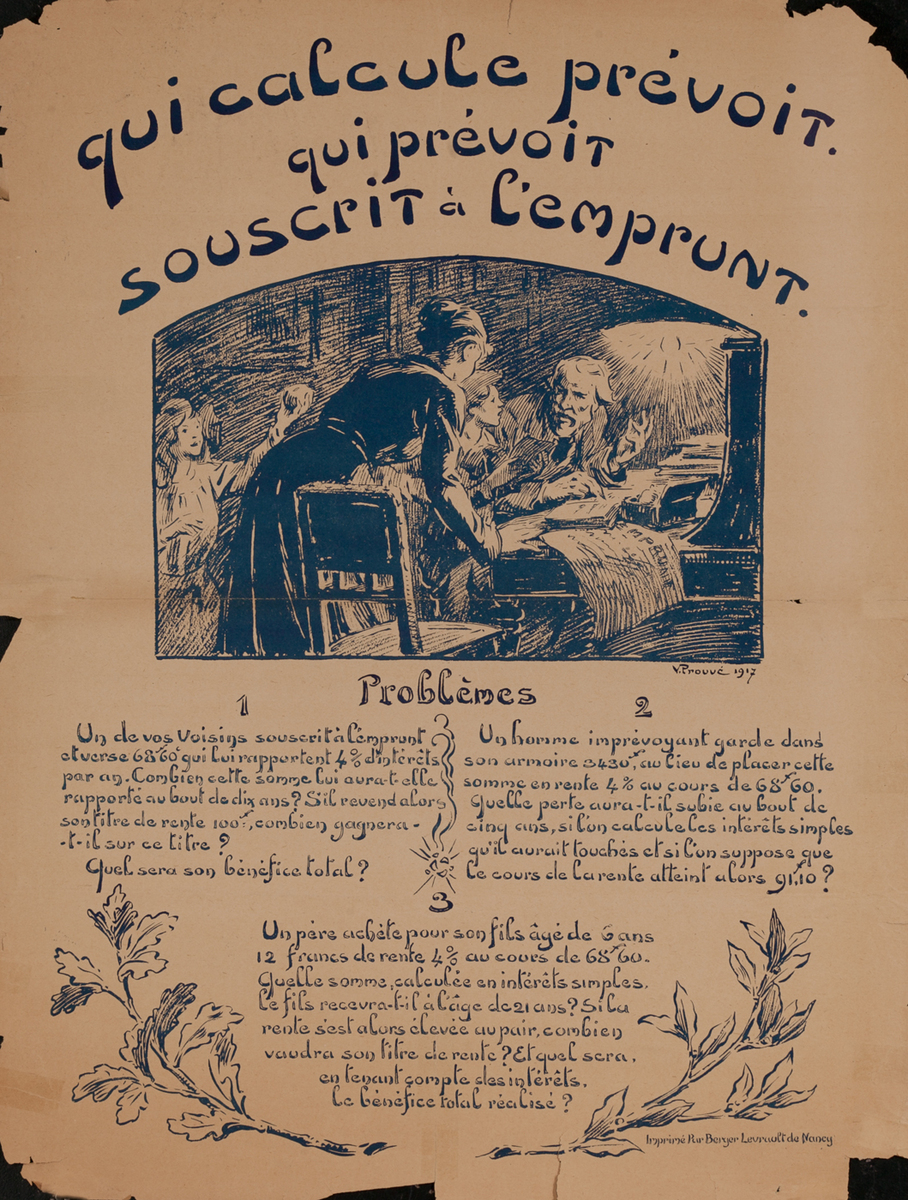 qui calcule prévoit.
qui prévoit
souscrit à l'emprunt.
EMPRUNT
V. Prouvé 1917
Problèmes
1
Un de vos voisins souscrit à l'emprunt
et verse 68f60c qui lui rapportent 4% d'intérêts
par an. Combien cette somme lui aura-t-elle
rapporté au bout de dix ans? S'il revend alors
son titre de rente 100f, combien gagnera-
-t-il sur ce titre ?
Quel sera son bénéfice total ?
2
Un homme imprévoyant garde dans
son armoire 3430f, au lieu de placer cette
somme en rente 4% au cours de 68f60.
Quelle perte aura-t-il subie au bout de
cinq ans, si l'on calcule les intérêts simples
qu'il aurait touchés et si l'on suppose que
le cours de la rente atteint alors 91f,10 ?
3
Un père achète pour son fils âgé de 6 ans
12 francs de rente 4% au cours de 68f60.
Quelle somme, calculée en intérêts simples,
le fils recevra-t-il à l'âge de 21 ans? Si la
rente s'est alors élevée au pair, combien
vaudra son titre de rente ? Et quel sera,
en tenant compte des intérêts,
le bénéfice total réalisé ?
Imprimé Par Berger Levrault de Nancy